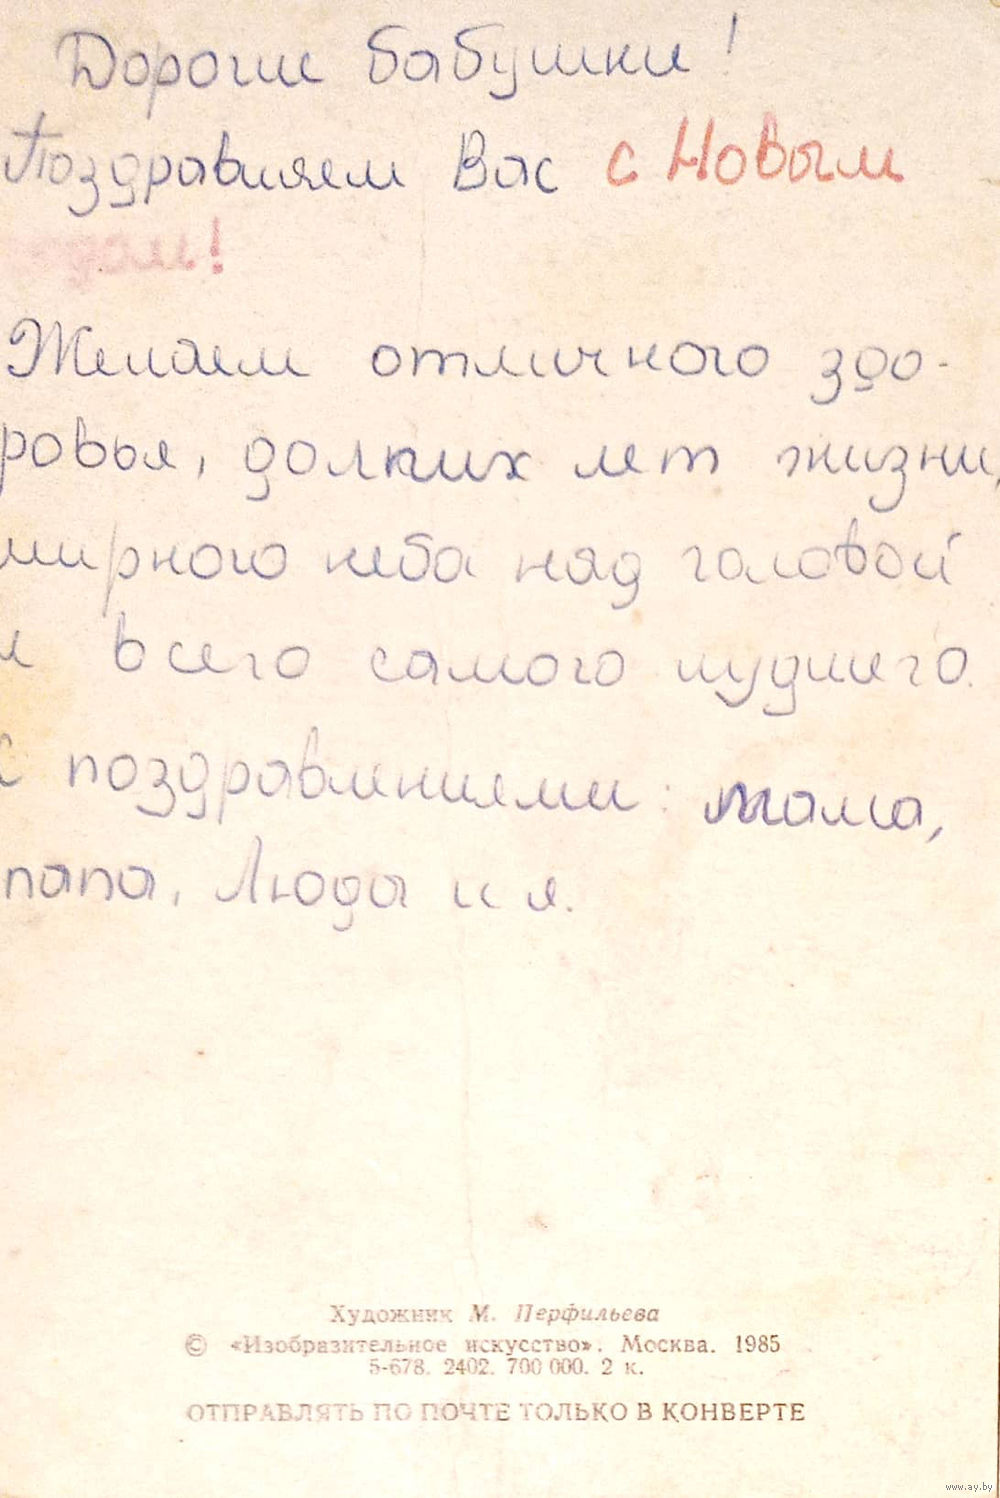 Дорогие бабушки!
Поздравляем Вас с Новым
годом!
Желаем отличного здо-
ровья, долгих лет жизни,
мирного неба над головой
и всего самого лудшего.
С поздравлениями: мама,
папа, Люда и я.
Художник М. Перфильева
© «Изобразительное искусство». Москва. 1985
5-678. 2402. 700 000. 2 к.
ОТПРАВЛЯТЬ ПО ПОЧТЕ ТОЛЬКО В КОНВЕРТЕ
www.ay.by